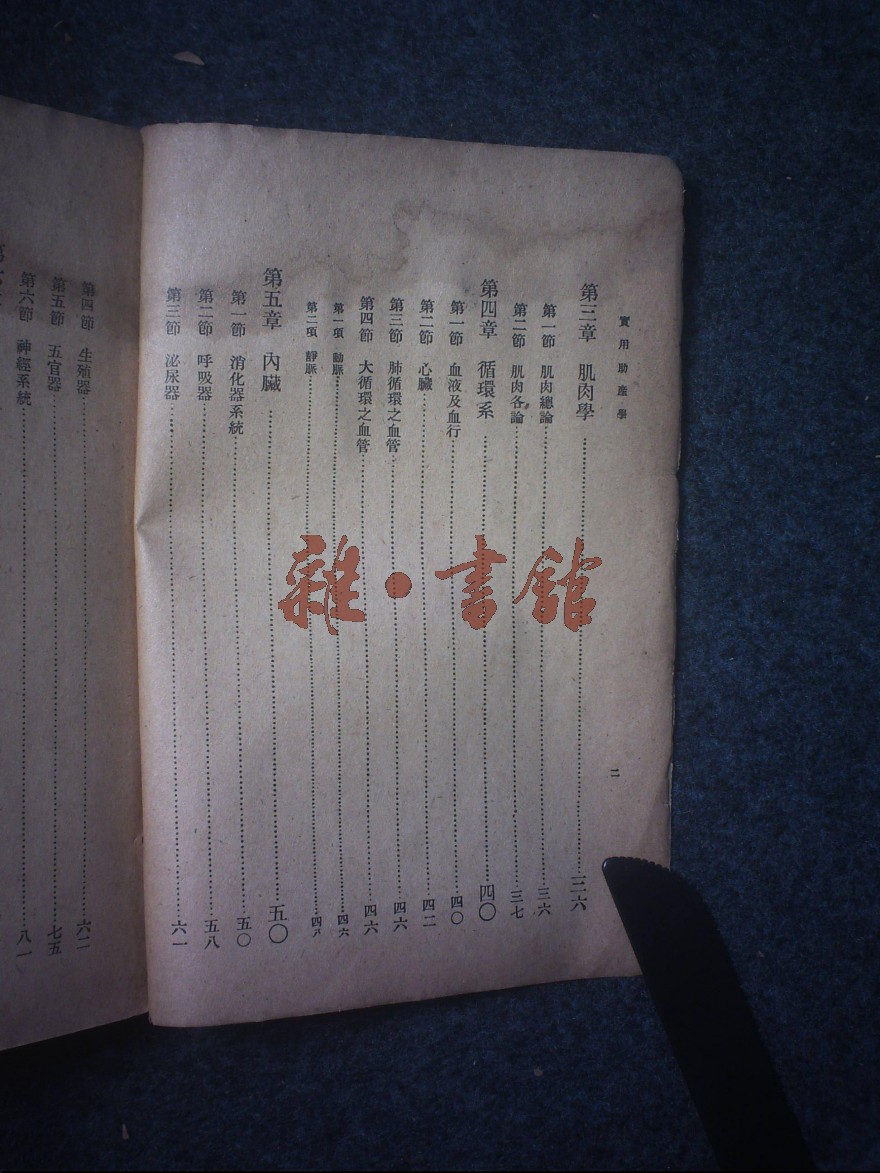 實用助產學
二
第三章 肌肉學……三六
第一節 肌肉總論……三六
第二節 肌肉各論……三七
第四章 循環系……四〇
第一節 血液及血行……四〇
第二節 心臟……四二
第三節 肺循環之血管……四六
第四節 大循環之血管……四六
第一項 動脈……四六
第二項 靜脈……四八
第五章 內臟……五〇
第一節 消化器系統……五〇
第二節 呼吸器……五八
第三節 泌尿器……六一
第四節 生殖器……六二
第五節 五官器……七五
第六節 神經系統……八一
雜·書館